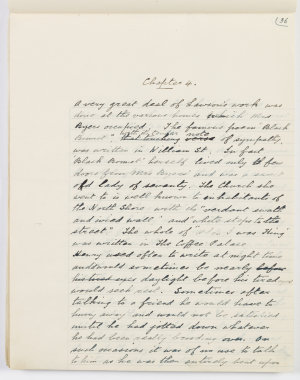 (36
Chapter 4.
A very great deal of Lawson's work was
done at the various houses which Mrs
Byers occupied. The famous poem "Black
Bonnet" of sympathy,
was written in William St. In fact
"Black Bonnet" herself lived only a few
doors from Mrs Byers and was a sweet
old lady of seventy. The Church she
went to is well known to inhabitants of
the North Shore with its "verdant swath
and ivied wall" and "white steps to the
street." The whole of was King"
was written in The Coffee Palace.
Henry used often to write at night time
and would sometimes be nearly before
daylight before his tired
would seek rest. Sometimes after
talking to a friend he would have to
hurry away and would not be satisfied
until he had jotted down whatever
he had been really brooding over. On
such occasions it was of no use to talk
to him as he was then entirely bent upon